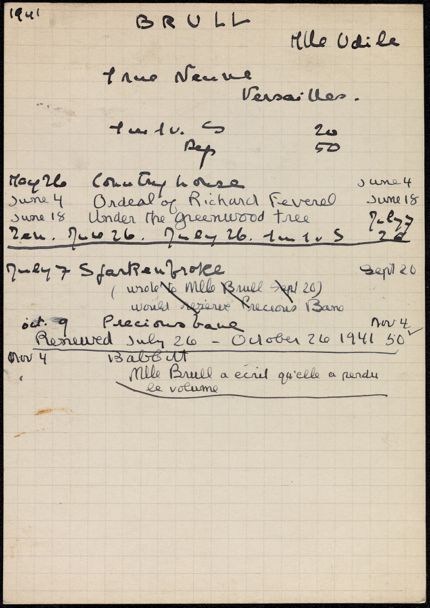 1941
BRULL
Mlle Odile
1 rue Neuve
Versailles.
1 m 1 v. S 20
Dep 50
May 26 Country house June 4
June 4 Ordeal of Richard Feverel June 18
June 18 Under the greenwood tree July 7
Ren. June 26. July 26. 1 m 1 v S 20
July 7 Sparkenbroke Sept 20
(wrote to Mlle Brull Sept 20)
would reserve Precious Bane
oct. 9 Precious bane Nov 4
Renewed July 26 - October 26 1941 50 ✓
Nov 4 Babbitt
Mlle Brull a écrit qu'elle a perdu
le volume